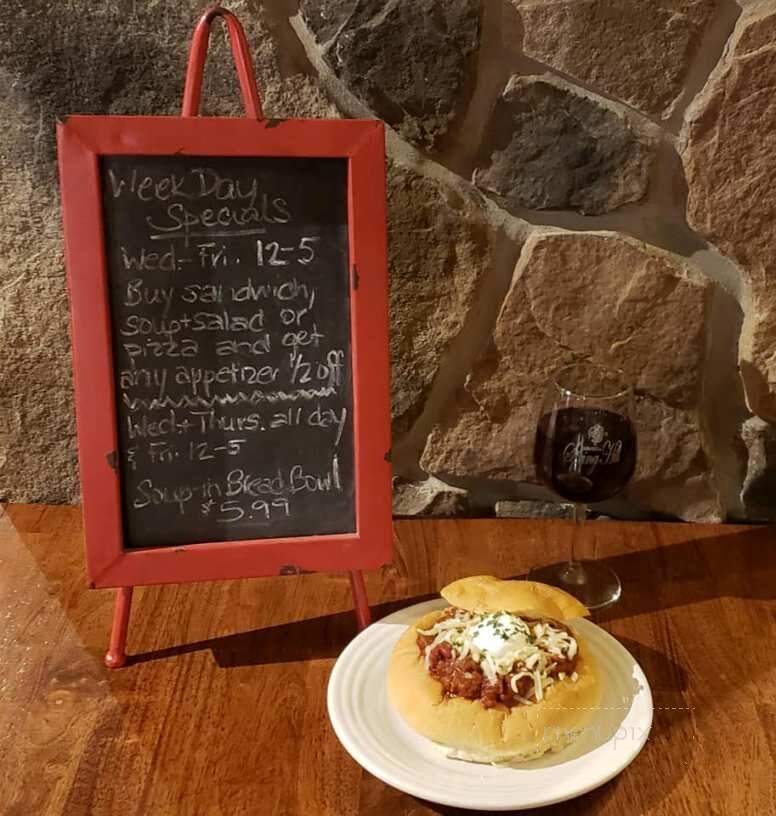 Week Day
Specials
Wed.-Fri. 12-5
Buy sandwich,
soup+salad or
pizza and get
any appetizer 1/2 off
Wed.+Thurs. all day
& Fri. 12-5
Soup in Bread Bowl
$5.99
menupix